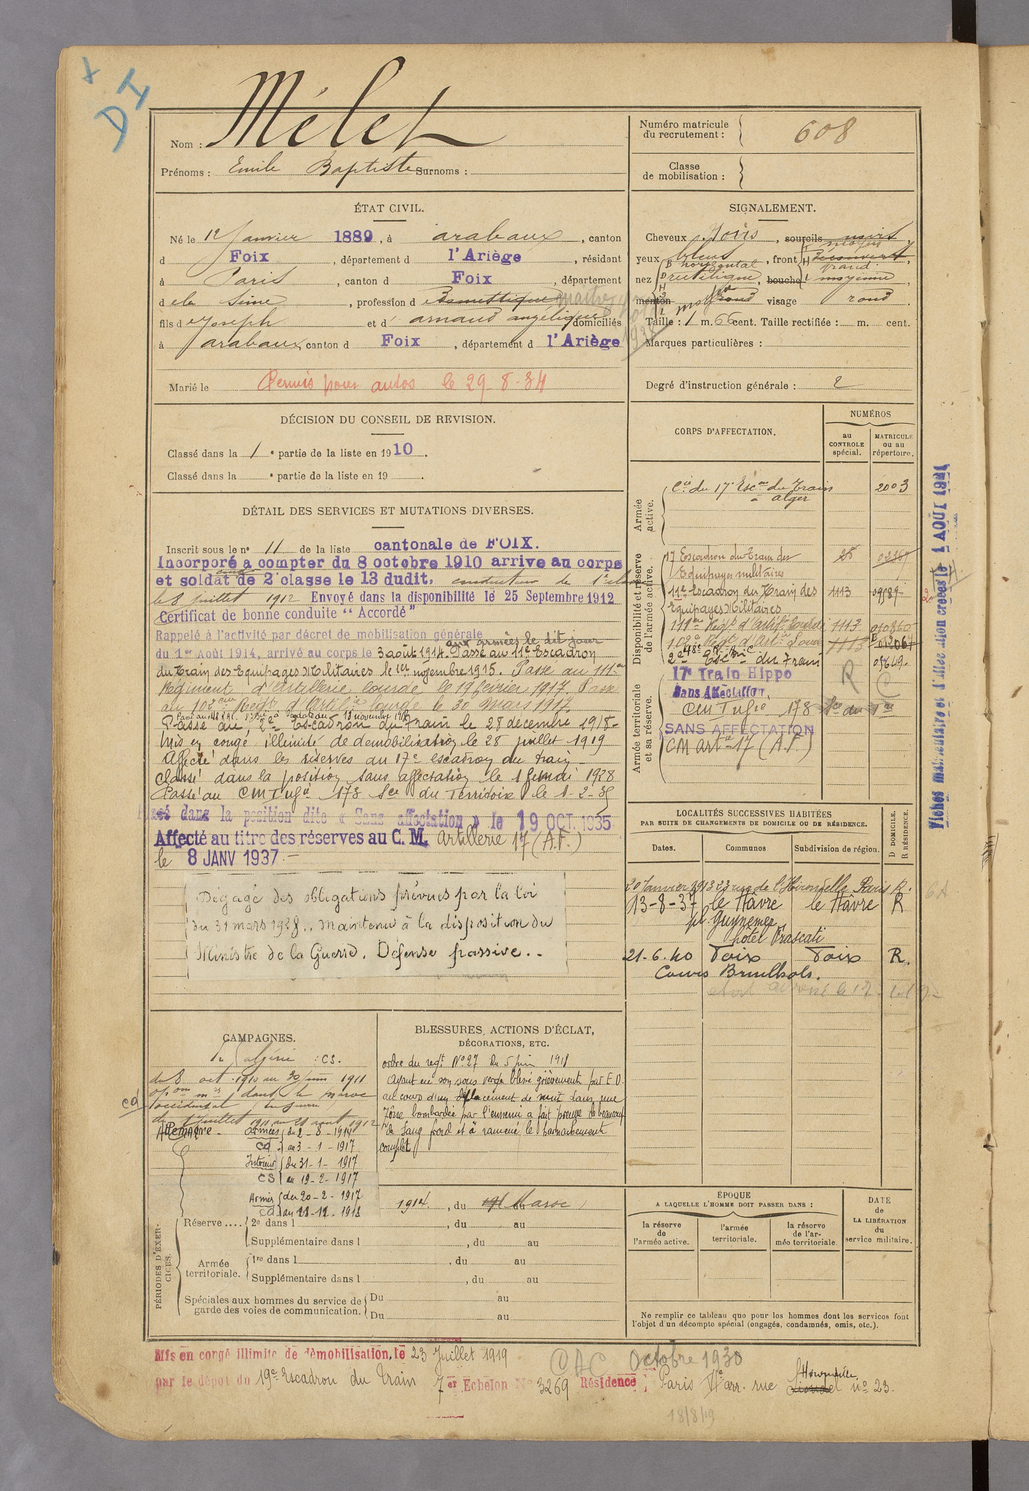 DI
Nom : Mélet
Prénoms : Emile Baptiste Surnoms :
Numéro matricule du recrutement : 608
Classe de mobilisation :
ÉTAT CIVIL.
Né le 12 Janvier 1889, à arabaux, canton
d Foix, département d l'Ariège, résidant
à Paris, canton d Foix, département
d ela Seine, profession d domestique
fils de Joseph et d' arnaud angélique domiciliés
à arabaux, canton d Foix, département d l'Ariège
Marié le Permis pour autos le 29-8-34
SIGNALEMENT.
Cheveux noirs, sourcils noirs
yeux bleus, front découvert
nez rectiligne bouche moyenne
menton rond visage rond
Taille : 1 m. 66 cent. Taille rectifiée : m. cent.
Marques particulières :
Degré d'instruction générale : 2
DÉCISION DU CONSEIL DE REVISION.
Classé dans la 1e partie de la liste en 1910.
Classé dans la e partie de la liste en 19 .
DÉTAIL DES SERVICES ET MUTATIONS DIVERSES.
Inscrit sous le n° 11 de la liste cantonale de FOIX.
Incorporé a compter du 8 octobre 1910 arrive au corps
et soldat de 2e classe le 13 dudit, conducteur de 1e classe
le 8 juillet 1912 Envoyé dans la disponibilité le 25 Septembre 1912
Certificat de bonne conduite "Accordé"
Rappelé à l'activité par décret de mobilisation générale aux armées le dit jour
du 1er Août 1914, arrivé au corps le 3 août 1914. Passé au 11e Escadron
du Train des Equipages Militaires le 1er novembre 1915. Passé au 111e
Régiment d'artillerie lourde le 19 février 1917. Passé
au 102eme Regt d'Artil. lourde le 30 mars 1917.
Passé au 2e Escadron du Train le 28 decembre 1918
Mis en congé illimité de démobilisation le 28 juillet 1919
Affecté dans les réserves du 17e escadron du train
Classé dans la position sans affectation le 1er mai 1928
Passé au CM Infie 178 Son du Territoire le 1-2-35
Placé dans la position dite « Sans affectation » le 19 OCT. 1935
Affecté au titre des réserves au C.M. Artillerie 17 (A.F.)
le 8 JANV 1937.-
Dégagé des obligations prévues par la loi
du 31 mars 1928., maintenu à la disposition du
Ministre de la Guerre. Défense passive..
CORPS D'AFFECTATION.
NUMÉROS
au CONTROLE spécial.
MATRICULE ou au répertoire.
Armée active.
Cie du 17e Escon du Train à alger 2003
Disponibilité et réserve de l'armée active.
17 Escadron du Train des Equipages militaires 25
11e Escadron du Train des Equipages Militaires 1113
111e Regt d'Artie Lourde 1113
102e Regt d'Art. Lourde 1113
Armée territoriale et sa réserve.
17e Train Hippo
Sans Affectation.
CM Infie 178 Son du Tre
SANS AFFECTATION
CM artie 17 (A.F.)
LOCALITÉS SUCCESSIVES HABITÉES
PAR SUITE DE CHANGEMENTS DE DOMICILE OU DE RÉSIDENCE.
Dates. Communes Subdivision de région. D. DOMICILE. R. RÉSIDENCE.
20 Janvier 1913 23 rue de l'Hirondelle Paris R.
13-8-37 le Havre le Hâvre R
pl. Guynemer
hôtel Frascati
21-6-40 Foix Foix R.
Cours Bouilhols.
CAMPAGNES.
En Algérie : CS.
du 8 oct. 1910 au 30 juin 1911
Allemagne - Armées du 2-8-1914
CD au 3-1-1917
Intérieur du 31-1-1917
CS au 19-2-1917
Armées du 20-2-1917
CD au 11-11-1918
BLESSURES, ACTIONS D'ÉCLAT,
DÉCORATIONS, ETC.
ordre du regt. N° 27 du 5 juin 1918
Ayant eu son sous verge blessé grièvement par E.O.
au cours d'un déplacement de nuit dans une
zone bombardée par l'ennemi a fait preuve de beaucoup
de sang froid et a ramené le harnachement
complet.
PÉRIODES D'EXERCICES.
1914, du au Maroc
Réserve .... 2e dans l , du au
Supplémentaire dans l , du au
Armée territoriale. 1re dans l , du au
Supplémentaire dans l , du au
Spéciales aux hommes du service de garde des voies de communication. Du au
Du au
ÉPOQUE
A LAQUELLE L'HOMME DOIT PASSER DANS :
la réserve de l'armée active. l'armée territoriale. la réserve de l'armée territoriale.
DATE DE LA LIBÉRATION du service militaire.
Ne remplir ce tableau que pour les hommes dont les services font
l'objet d'un décompte spécial (engagés, condamnés, omis, etc.).
Mis en congé illimité de démobilisation, le 23 Juillet 1919
par le dépôt du 19e Escadron du Train 7er Echelon N° 3269 Résidence : Paris VIe arr. rue Hirondelle n° 23.
CAC Octobre 1930
18/8/19